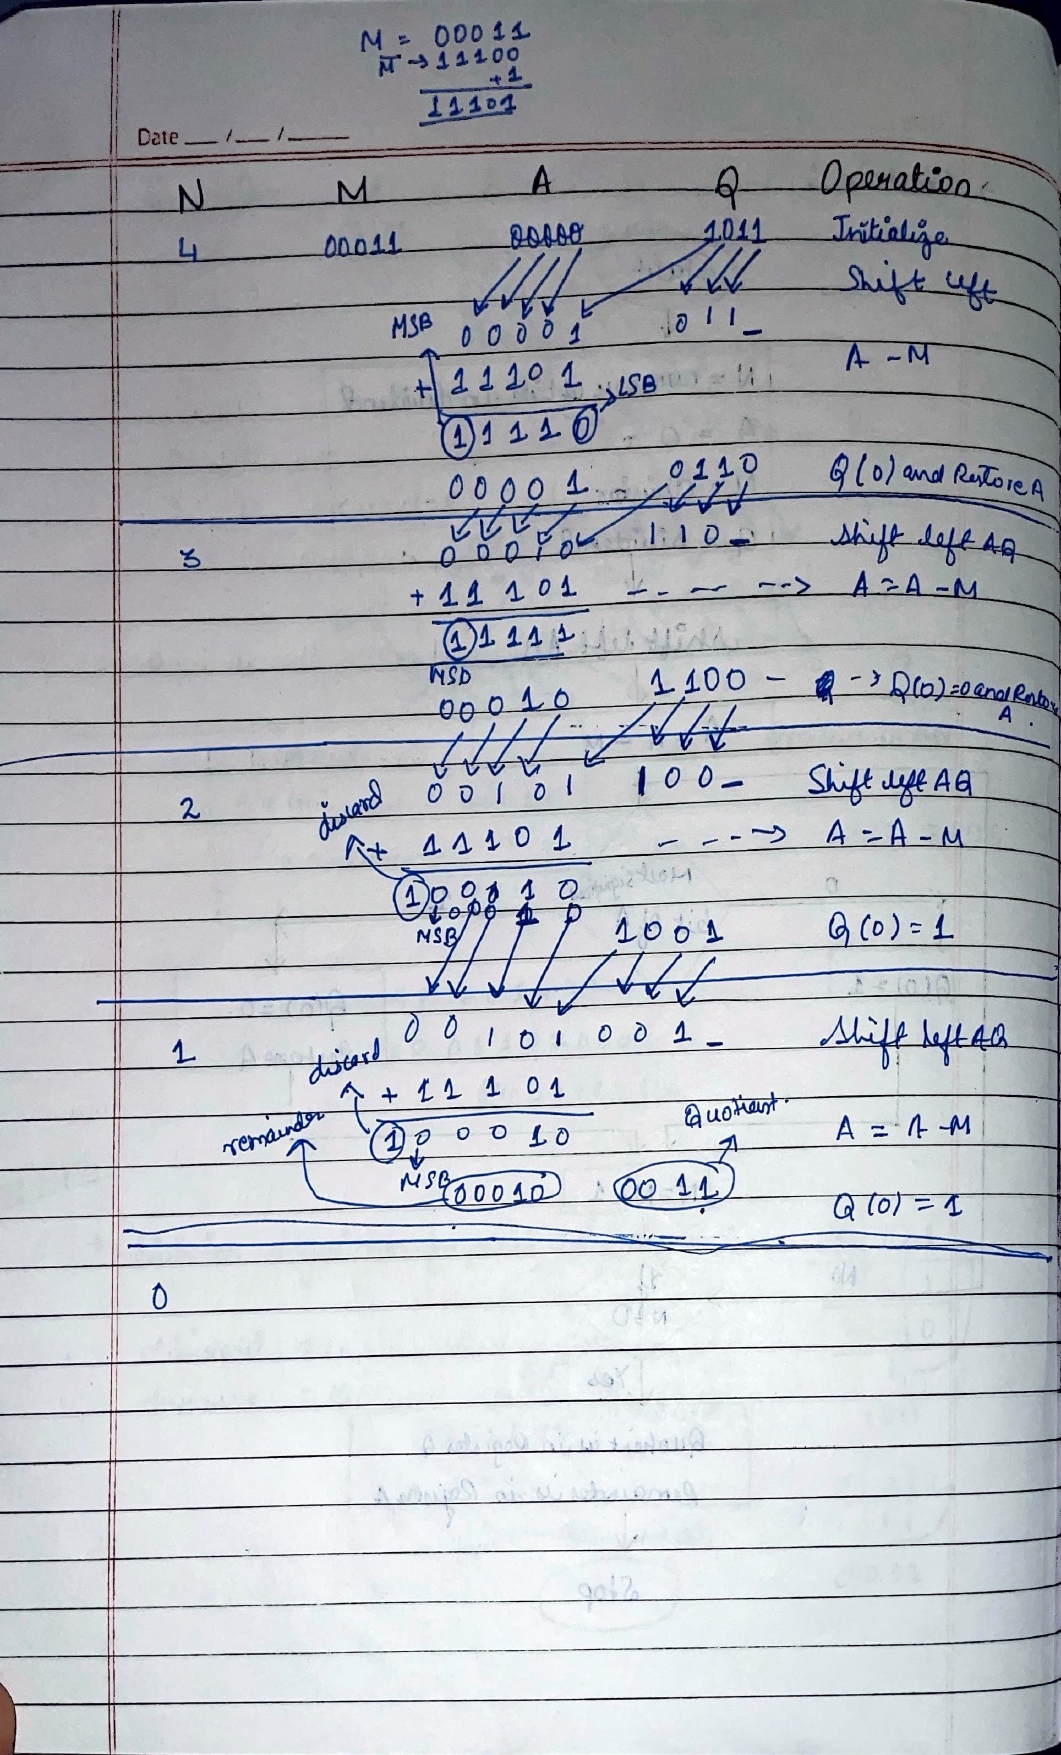 M = 00011
M̅ → 11100
+1
11101
Date __/__/____
N M A Q Operation
4 00011 00000 1011 Initialize
Shift left
MSB 00001 011_
+ 11101 A - M
LSB
11110
00001 0110 Q(0) and Restore A
3 00010 110_ Shift left AQ
+ 11101 -- - --> A = A - M
11111
MSB
00010 1100 - -> Q(0)=0 and Restore
A.
2 00101 100_ Shift left AQ
discard
+ 11101 - - --> A = A - M
100010
MSB 1001 Q(0) = 1
1 00101 001_ Shift left AQ
discard
+ 11101
remainder Quotient.
100010 A = A - M
MSB 00010 0011
Q(0) = 1
0